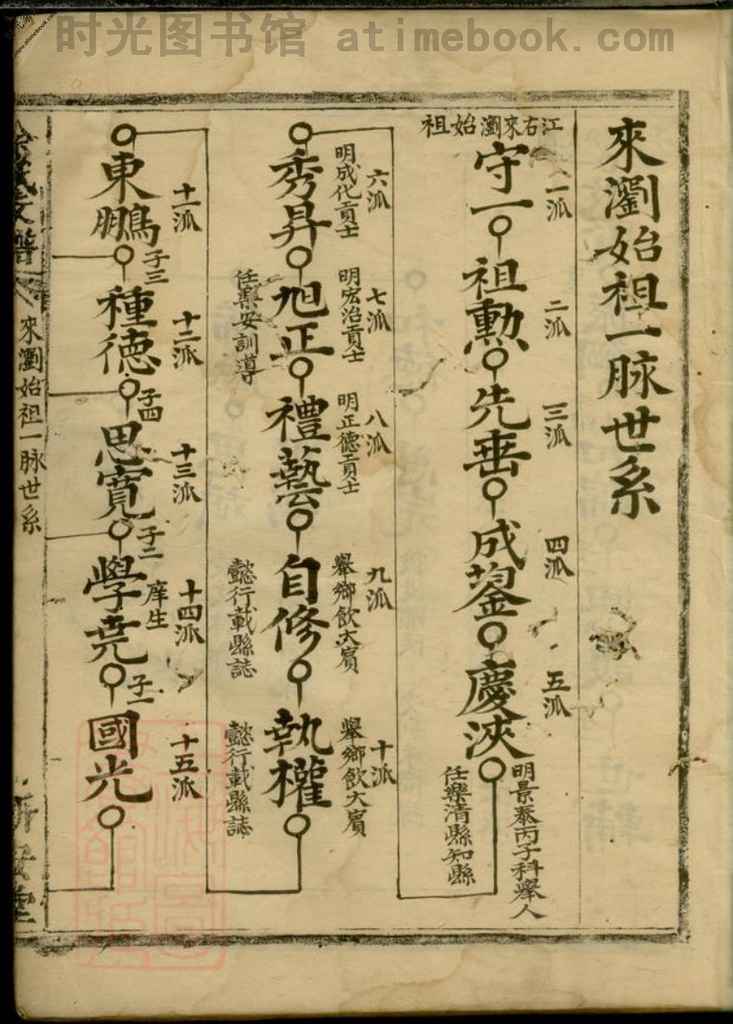 时光图书馆 atimebook.com
來瀏始祖一脉世系
江右來瀏始祖
一派
守一
二派
祖勲
三派
先垂
四派
成鋆
五派
慶浹
明景泰丙子科舉人
任樂清縣知縣
六派
明成化貢士
秀昇
七派
明宏治貢士
旭正
任樂安訓導
八派
明正德貢士
禮藝
九派
舉鄉飲大賓
自修
懿行載縣誌
十派
舉鄉飲大賓
執權
懿行載縣誌
十一派
東鵬
子三
十二派
種德
子四
十三派
思寬
子二
十四派
庠生
學堯
子一
十五派
國光
支譜
來瀏始祖一脉世系